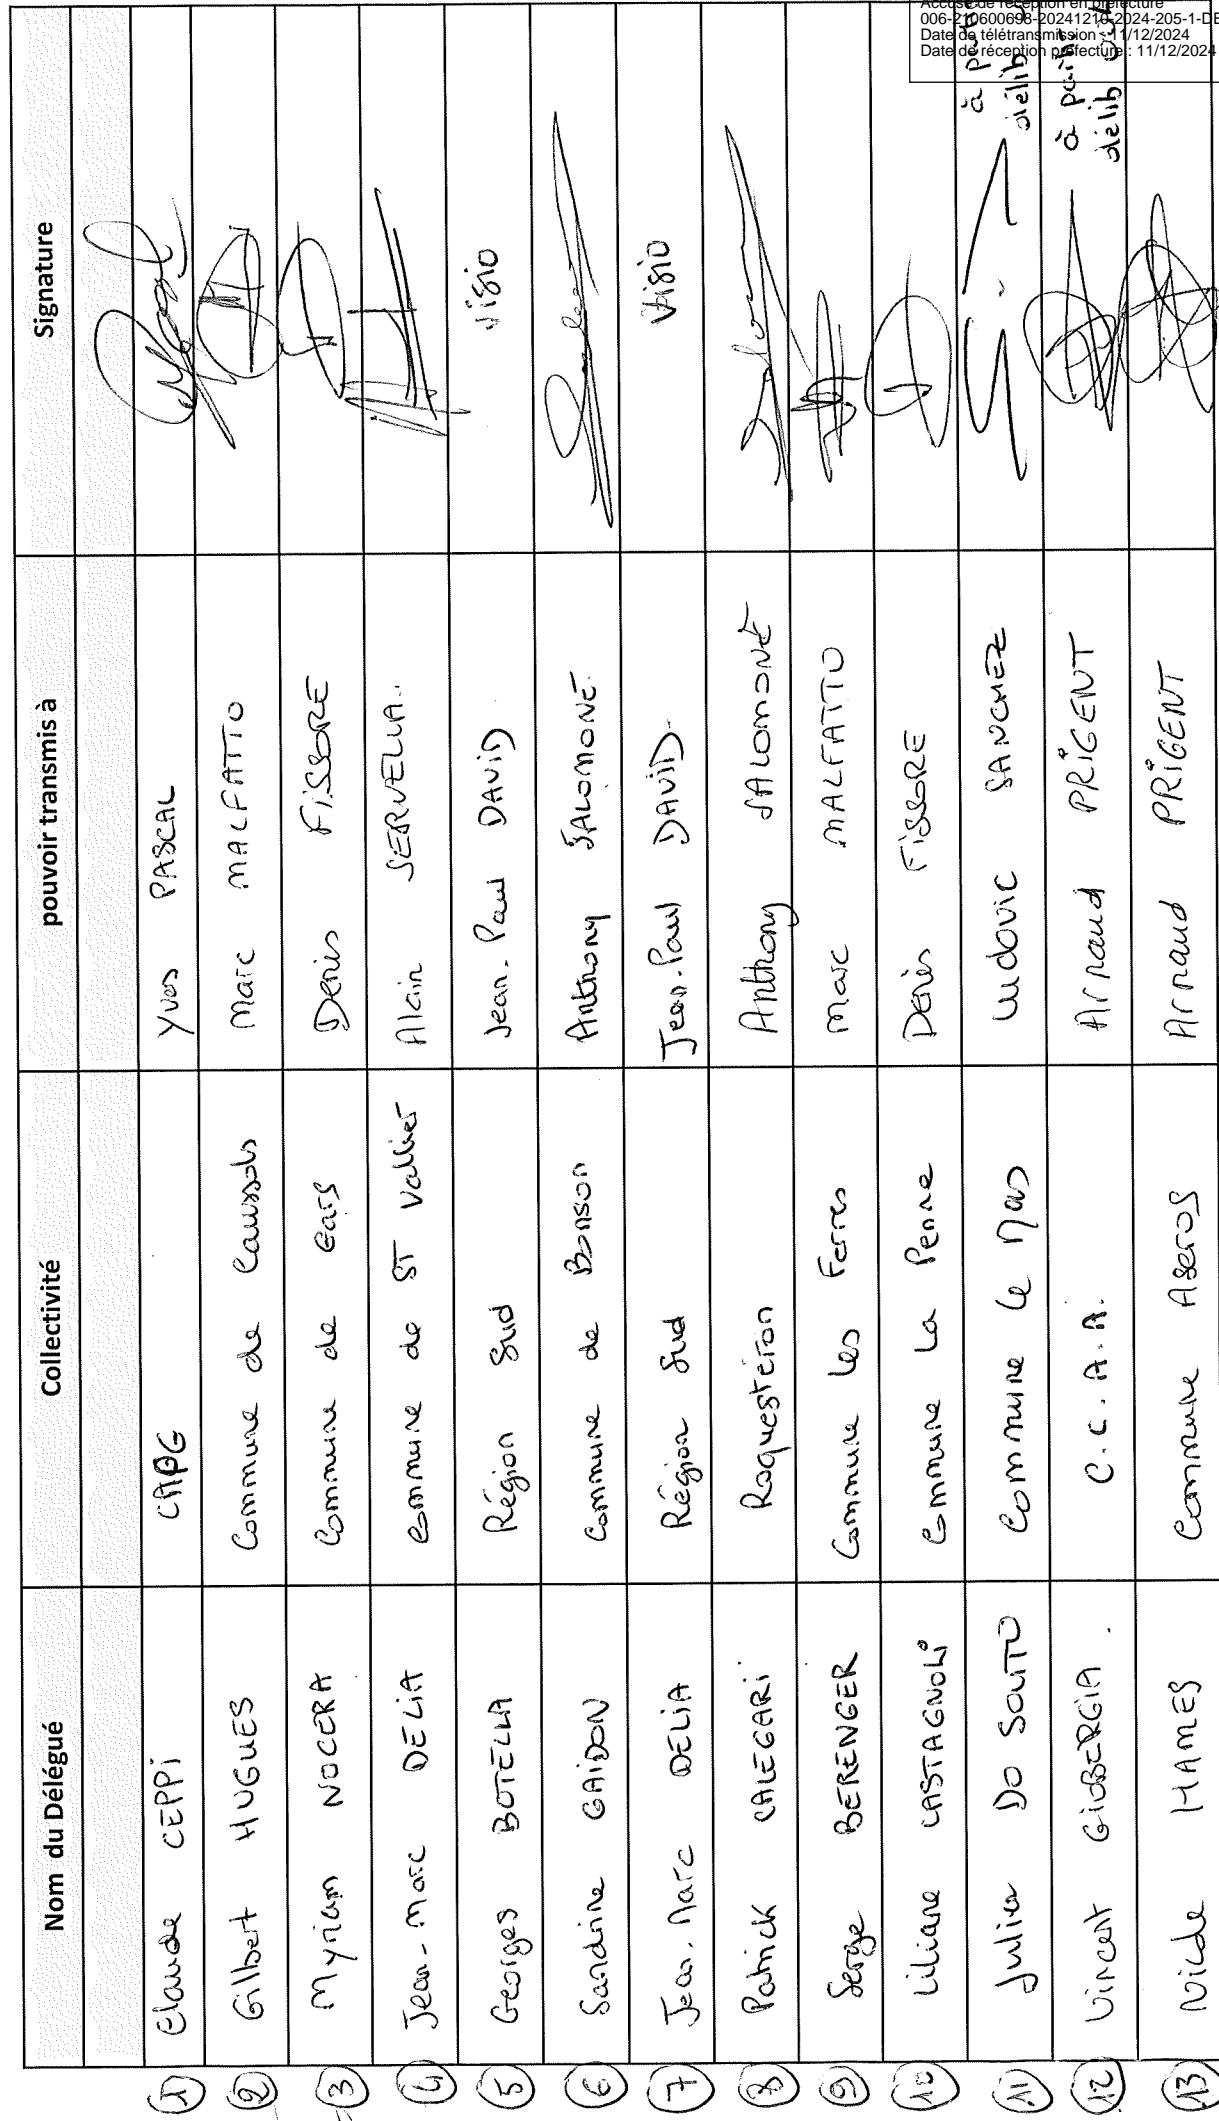 Accusé de réception en préfecture
006-210600698-20241210-2024-205-1-DE
Date de télétransmission : 11/12/2024
Date de réception préfecture : 11/12/2024
Nom du Délégué Collectivité pouvoir transmis à Signature
1 Claude CEPPi CAPG Yves PASCAL
2 Gilbert HUGUES Commune de Caussols Marc MALFATTO
3 Myriam NOCERA Commune de Gars Denis FiSSORE
4 Jean-Marc DELiA Commune de ST Vallier Alain SERVELLA.
5 Georges BOTELLA Région Sud Jean-Paul DAViD visio
6 Sandrine GAiDON Commune de Bonson Anthony SALOMONE.
7 Jean-Marc DELiA Région Sud Jean-Paul DAViD. Visio
8 Patrick CALEGARi Roquesteron Anthony SALOMONE
9 Serge BERENGER Commune Les Ferres Marc MALFATTO
10 Liliane CASTAGNOLi Commune La Penne Denis FiSSORE
11 Julien DO SOUTO Commune Le Mas Ludovic SANCHEZ à délib
12 Vincent GiOBERGiA. C.C.A.A. Arnaud PRiGENT à partir délib
13 HAMES Commune Arnaud PRiGENT